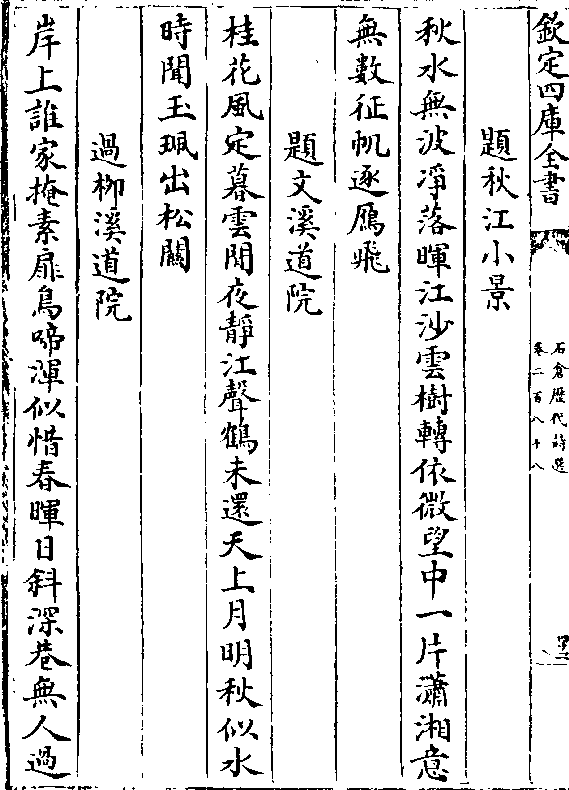 欽定四庫全書
石倉歴代詩選
卷二百八十八
題秋江小景
秋水無波凈落暉江沙雲樹轉依微望中一片瀟湘意
無數征帆逐鴈飛
題文溪道院
桂花風定暮雲閒夜靜江聲鶴未還天上月明秋似水
時聞玉珮出松關
過柳溪道院
岸上誰家掩素扉鳥啼渾似惜春暉日斜深巷無人過